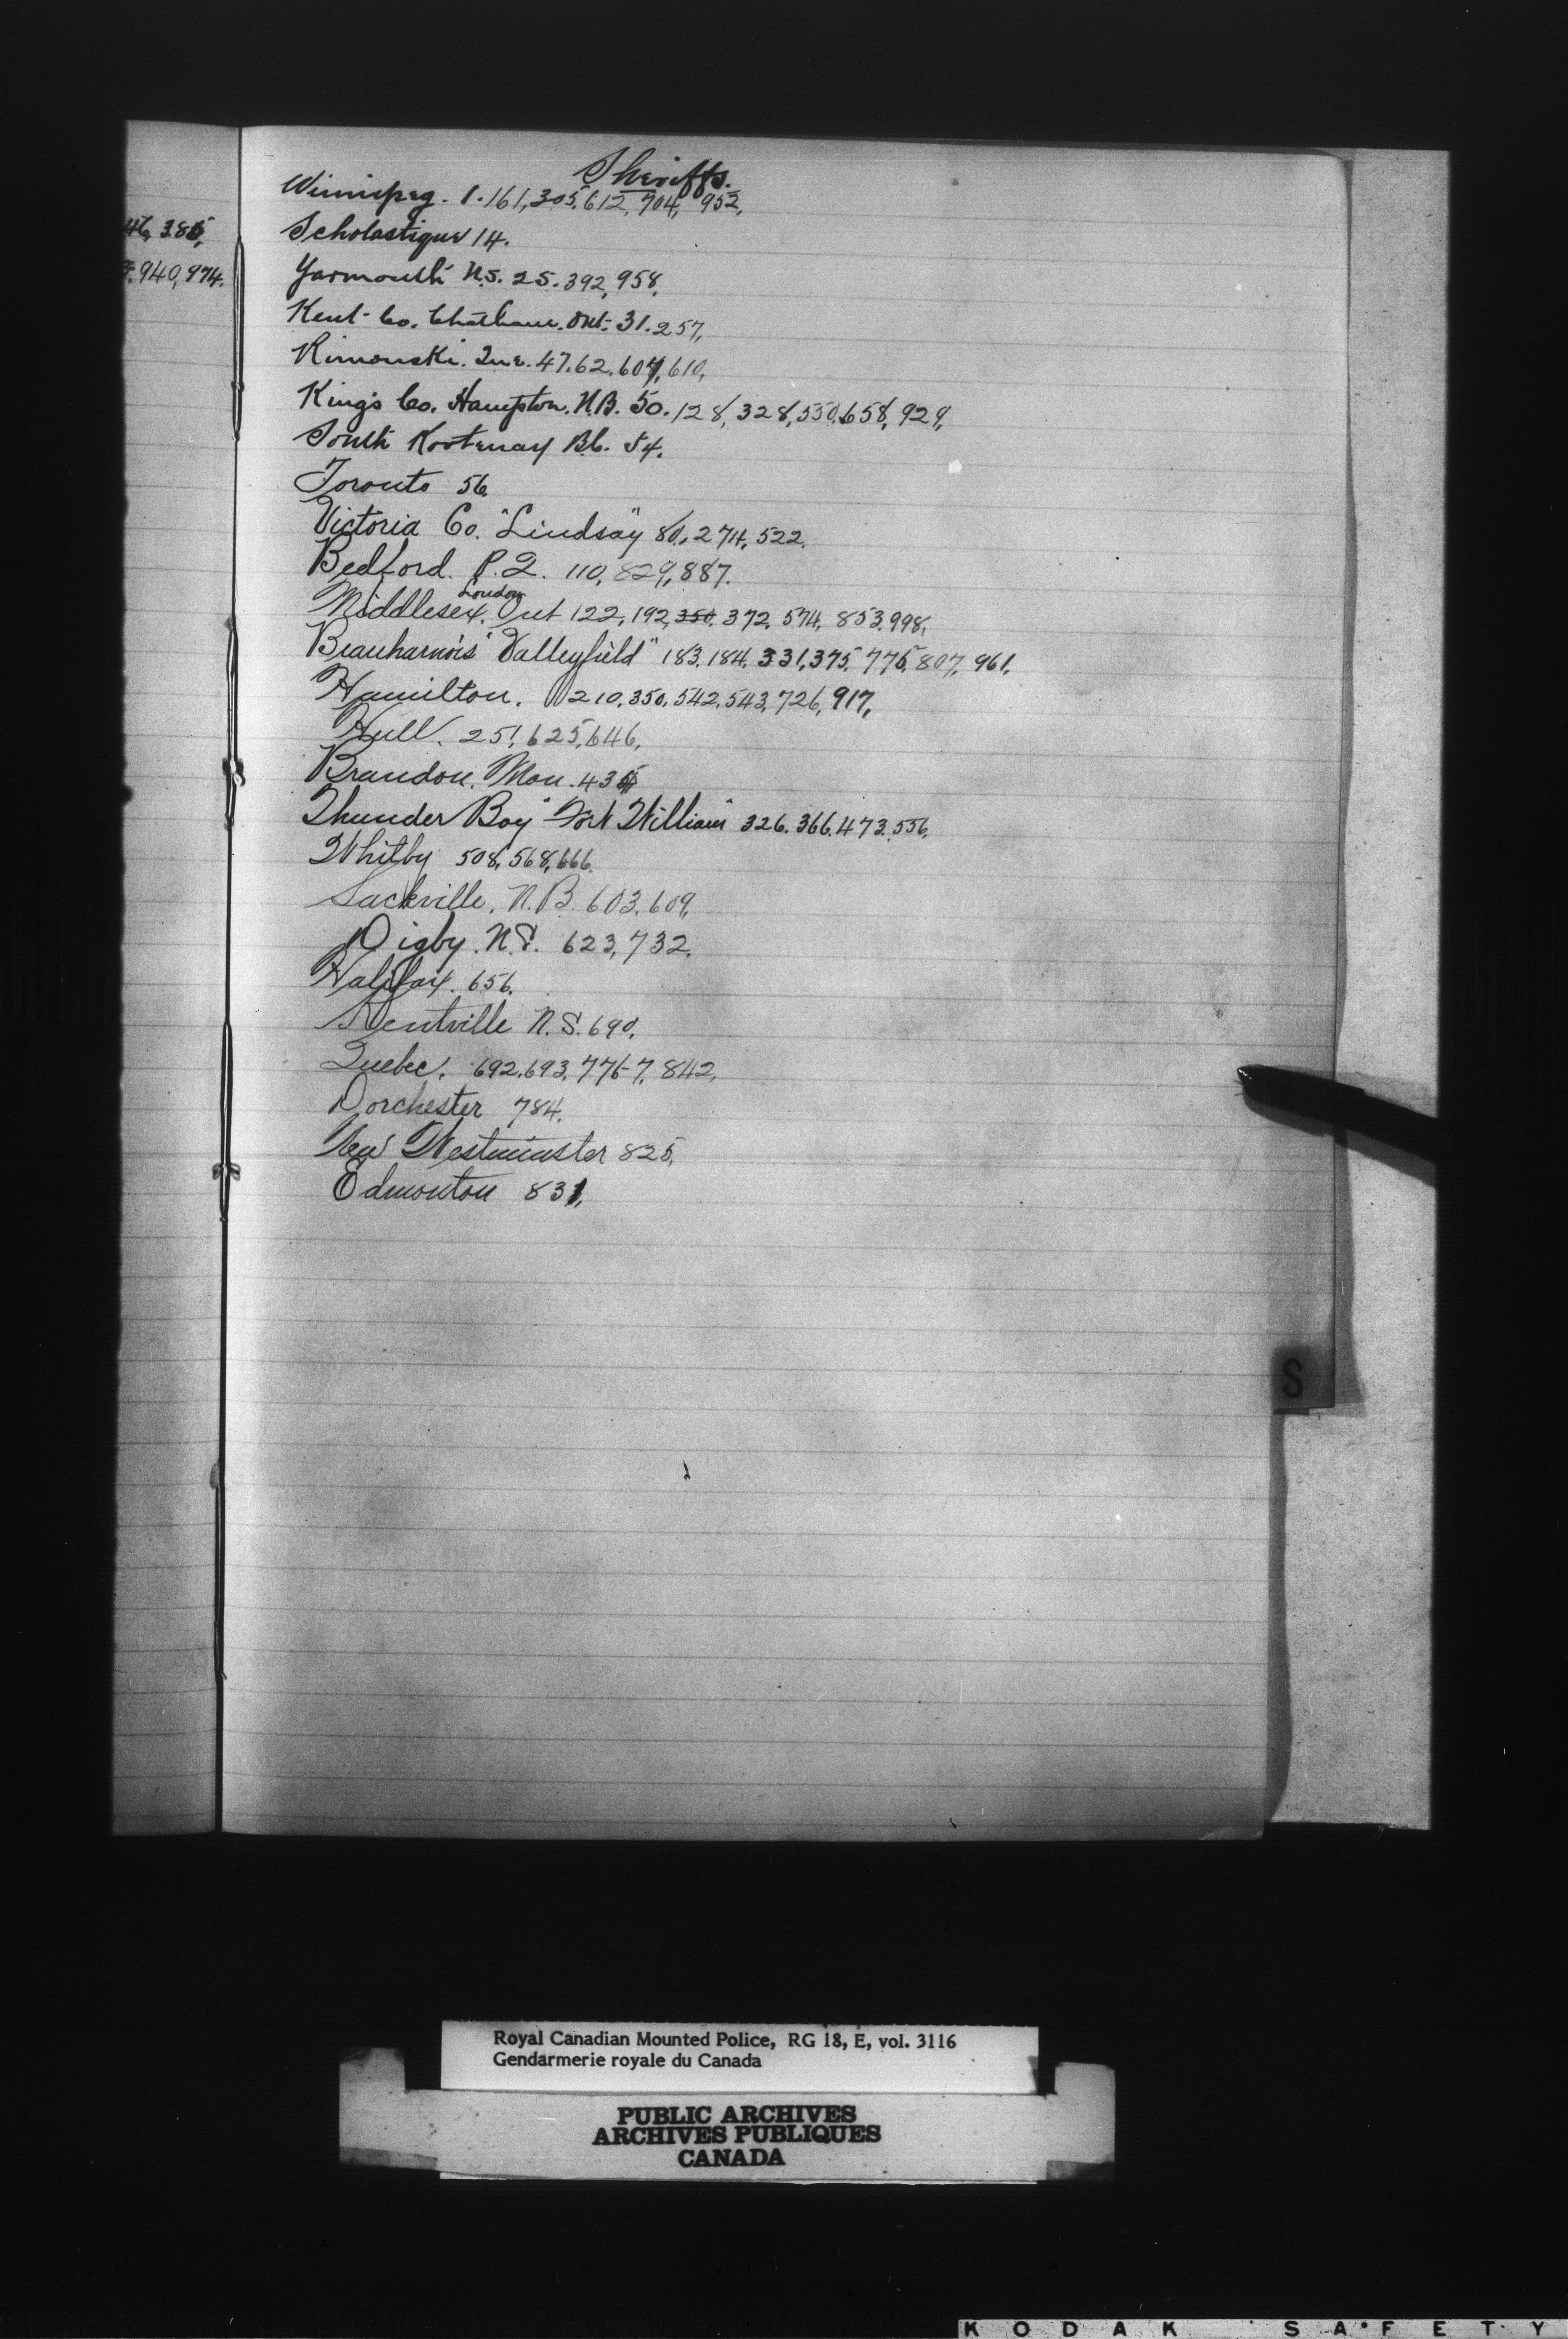 46, 385,
940, 974.
Sheriffs.
Winnipeg. 1. 161, 305, 612, 704, 952,
Scholastique 14.
Yarmouth N.S. 25. 392, 958,
Kent Co. Chatham. Ont. 31. 257,
Rimouski. Que. 47. 62. 604, 610,
King's Co. Hampton. N.B. 50. 128, 328, 550, 658, 929,
South Kootenay B.C. 54.
Toronto 56.
Victoria Co. "Lindsay" 80, 274, 522.
Bedford. P.Q. 110, 829, 887.
London
Middlesex. Ont 122, 192, 350, 372, 574, 853, 998,
Beauharnois "Valleyfield" 183, 184, 331, 375, 775, 807, 961.
Hamilton. 210, 350, 542, 543, 726, 917,
Hull. 251, 625, 646,
Brandon. Man. 435
Thunder Bay "Fort William" 326. 366. 473. 556.
Whitby 508, 568, 666.
Sackville, N.B. 603, 609,
Digby. N.S. 623, 732.
Halifax. 656.
Kentville N.S. 690.
Quebec. 692, 693, 776-7, 842,
Dorchester 784.
New Westminster 825,
Edmonton 831,
S
Royal Canadian Mounted Police, RG 18, E, vol. 3116
Gendarmerie royale du Canada
PUBLIC ARCHIVES
ARCHIVES PUBLIQUES
CANADA
KODAK SAFETY